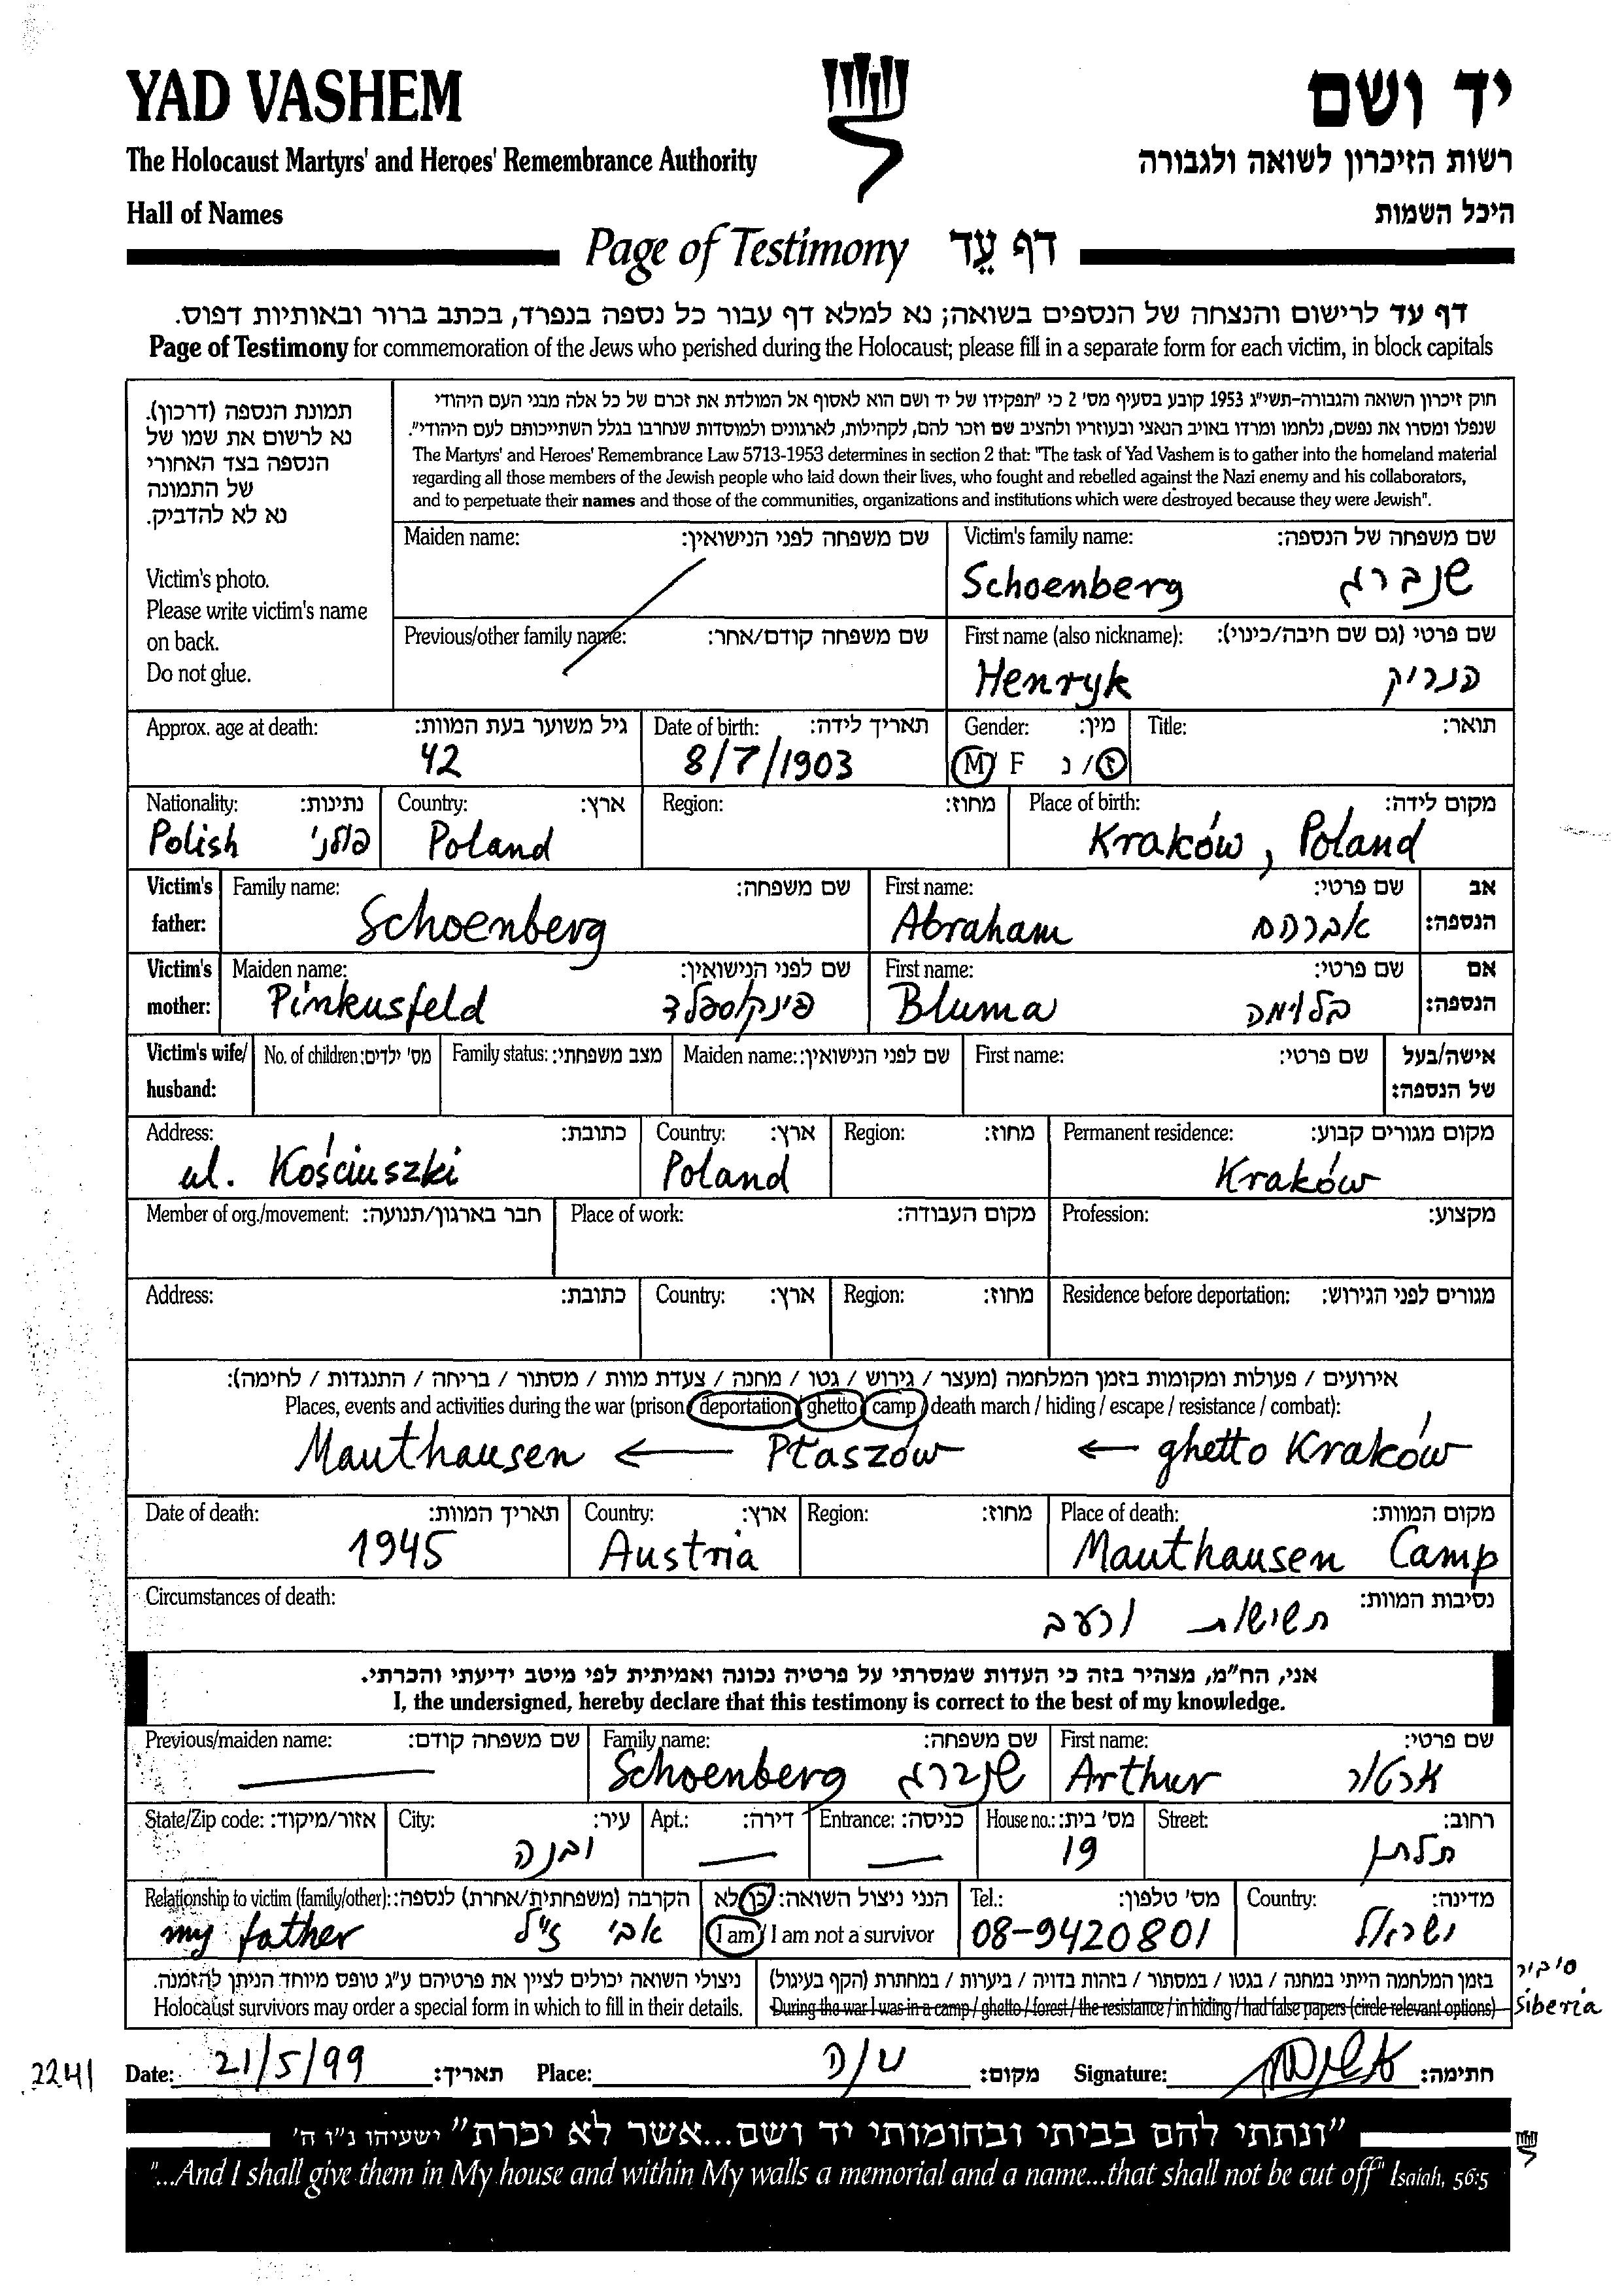 YAD VASHEM
יד ושם
The Holocaust Martyrs' and Heroes' Remembrance Authority
רשות הזיכרון לשואה ולגבורה
Hall of Names
היכל השמות
Page of Testimony דף עֵד
דף עד לרישום והנצחה של הנספים בשואה; נא למלא דף עבור כל נספה בנפרד, בכתב ברור ובאותיות דפוס.
Page of Testimony for commemoration of the Jews who perished during the Holocaust; please fill in a separate form for each victim, in block capitals
תמונת הנספה (דרכון).
נא לרשום את שמו של
הנספה בצד האחורי
של התמונה
נא לא להדביק.
Victim's photo.
Please write victim's name
on back.
Do not glue.
חוק זיכרון השואה והגבורה-תשי"ג 1953 קובע בסעיף מס' 2 כי "תפקידו של יד ושם הוא לאסוף אל המולדת את זכרם של כל אלה מבני העם היהודי
שנפלו ומסרו את נפשם, נלחמו ומרדו באויב הנאצי ובעוזריו ולהציב שם וזכר להם, לקהילות, לארגונים ולמוסדות שנחרבו בגלל השתייכותם לעם היהודי".
The Martyrs' and Heroes' Remembrance Law 5713-1953 determines in section 2 that: "The task of Yad Vashem is to gather into the homeland material
regarding all those members of the Jewish people who laid down their lives, who fought and rebelled against the Nazi enemy and his collaborators,
and to perpetuate their names and those of the communities, organizations and institutions which were destroyed because they were Jewish".
Maiden name: שם משפחה לפני הנישואין:
Victim's family name: שם משפחה של הנספה:
Schoenberg שנברג
Previous/other family name: שם משפחה קודם/אחר:
First name (also nickname): שם פרטי (גם שם חיבה/כינוי):
Henryk הנריק
Approx. age at death: גיל משוער בעת המוות:
42
Date of birth: תאריך לידה:
8/7/1903
Gender: מין:
M/ F ז/ נ
Title: תואר:
Nationality: נתינות:
Polish פולני
Country: ארץ:
Poland
Region: מחוז:
Place of birth: מקום לידה:
Kraków, Poland
Victim's father: Family name: שם משפחה:
Schoenberg
First name: שם פרטי: אב הנספה:
Abraham אברהם
Victim's mother: Maiden name: שם לפני הנישואין:
Pinkusfeld פינקוספלד
First name: שם פרטי: אם הנספה:
Bluma בלומה
Victim's wife/ husband: No. of children: מס' ילדים: Family status: מצב משפחתי: Maiden name: שם לפני הנישואין: First name: שם פרטי: אישה/בעל של הנספה:
Address: כתובת:
ul. Kościuszki
Country: ארץ:
Poland
Region: מחוז:
Permanent residence: מקום מגורים קבוע:
Kraków
Member of org./movement: חבר בארגון/תנועה: Place of work: מקום העבודה: Profession: מקצוע:
Address: כתובת: Country: ארץ: Region: מחוז: Residence before deportation: מגורים לפני הגירוש:
אירועים / פעולות ומקומות בזמן המלחמה (מעצר / גירוש / גטו / מחנה / צעדת מוות / מסתור / בריחה / התנגדות / לחימה):
Places, events and activities during the war (prison / deportation / ghetto / camp / death march / hiding / escape / resistance / combat):
Mauthausen ← Płaszów ← ghetto Kraków
Date of death: תאריך המוות:
1945
Country: ארץ:
Austria
Region: מחוז:
Place of death: מקום המוות:
Mauthausen Camp
Circumstances of death: נסיבות המוות:
תשישות ורעב
אני, הח"מ, מצהיר בזה כי העדות שמסרתי על פרטיה נכונה ואמיתית לפי מיטב ידיעתי והכרתי.
I, the undersigned, hereby declare that this testimony is correct to the best of my knowledge.
Previous/maiden name: שם משפחה קודם:
Family name: שם משפחה:
Schoenberg שנברג
First name: שם פרטי:
Arthur ארטור
State/Zip code: אזור/מיקוד:
City: עיר:
יבנה
Apt.: דירה:
Entrance: כניסה:
House no.: מס' בית:
19
Street: רחוב:
תלתן
Relationship to victim (family/other): הקרבה (משפחתית/אחרת) לנספה:
my father אבי ז"ל
הנני ניצול השואה: כן לא
I am / I am not a survivor
Tel.: מס' טלפון:
08-9420801
Country: מדינה:
ישראל
ניצולי השואה יכולים לציין את פרטיהם ע"ג טופס מיוחד הניתן להזמנה.
Holocaust survivors may order a special form in which to fill in their details.
בזמן המלחמה הייתי במחנה / בגטו / במסתור / בזהות בדויה / ביערות / במחתרת (הקף בעיגול)
During the war I was in a camp / ghetto / forest / the resistance / in hiding / had false papers (circle relevant options)
סיביר
Siberia
2241
Date: 21/5/99 תאריך: Place: מקום: Signature: חתימה:
"ונתתי להם בביתי ובחומותי יד ושם...אשר לא יכרת" ישעיהו נ"ו ה'
"...And I shall give them in My house and within My walls a memorial and a name...that shall not be cut off" Isaiah, 56:5